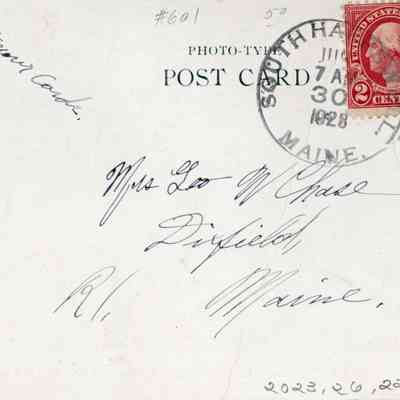 #601 50
Cards.
PHOTO-TYPE
POST CARD
SOUTH HA
JUL
7 AM
30
1928
MAINE.
UNITED STATES
2 CENT
Mrs Geo W Chase
Dixfield,
R1. Maine.
2023,26,22